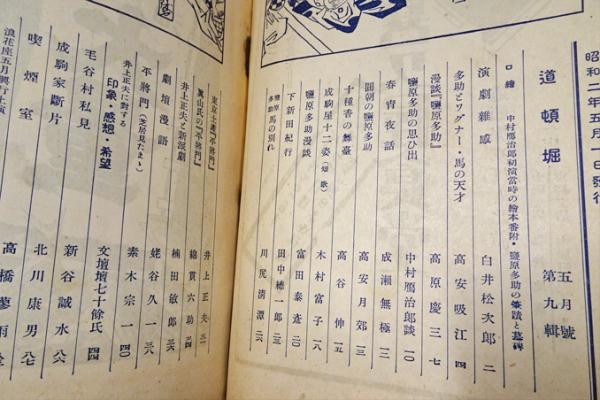 昭和二年五月一日發行
道頓堀
五月號
第九輯
口繪
中村鴈治郎初演當時の繪本番附・鹽原多助の筆蹟と墓碑
演劇雜感 白井松次郎 二
多助とワグナー・馬の天才 高安吸江 四
漫談『鹽原多助』 高原慶三 七
鹽原多助の思ひ出 中村鴈治郎談 一〇
春宵夜話 成瀬無極 一三
圓朝の鹽原多助 高安月郊 一三
十種香の舞臺 高谷伸 一五
成駒屋十二姿(短歌) 木村富子 一八
鹽原多助漫談 富田泰彦 二〇
下新田紀行 田中穗一郎 二三
鹽原多助馬の別れ 川尻清潭 二六
東京土產『平將門』 井上正夫 三一
眞山氏の『平將門』 綿貫六助 三四
井上正夫と新派劇 楠田敏郎 三六
劇壇漫語 蛯谷久一 三八
平將門(芝居見たまゝ) 素木宗一 四〇
井上正夫に對する
印象・感想・希望 文壇劇壇七十餘氏 四四
毛谷村私見 新谷誠水 六六
成駒家斷片 北川康男 八七
喫煙室
浪花座五月興行上演 高橋夢雨